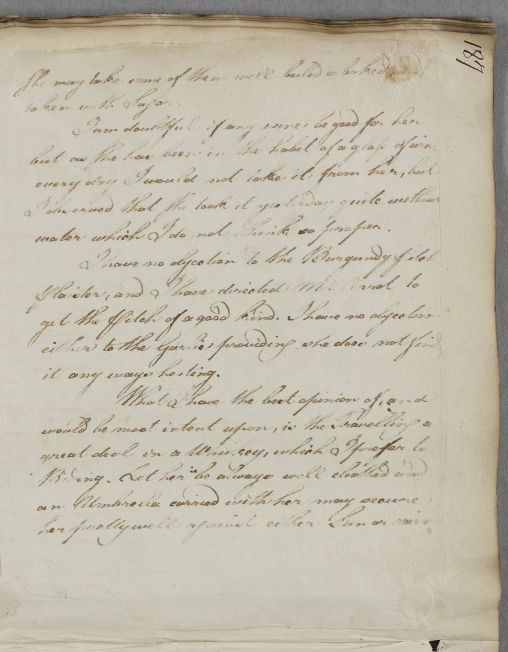 187
She may take some of them well boiled or baked
taken with Sugar.
I am doubtful if any wines be good for her
but as she has been in the habit of a glass of wine
every day I would not take it from her, but
I observed that she took it yesterday quite without
water which I do not think so proper.
I have no objection to the Burgundy pitch
Plaister, and I have directed to
get the Pitch of a good kind. I have no objection
either to the Garlic providing she does not find
it any ways heating.
What I have the best opinion of, and
would be most intent upon, is the Travelling a
great deal in a Whiskey, which I prefer to
Riding. Let her be always well cloathed and
an Umbrella carried with her may secure
her pretty well against either Sun or rain